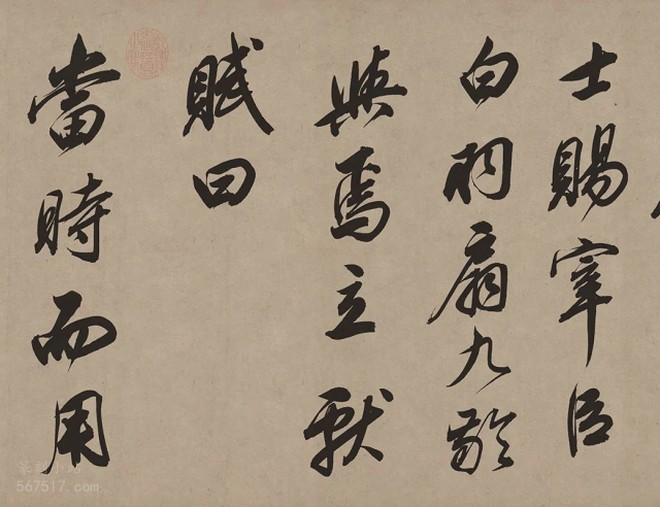 士賜宰臣
白羽扇九齡
與焉立獻
賦曰
當時而用
567517.com